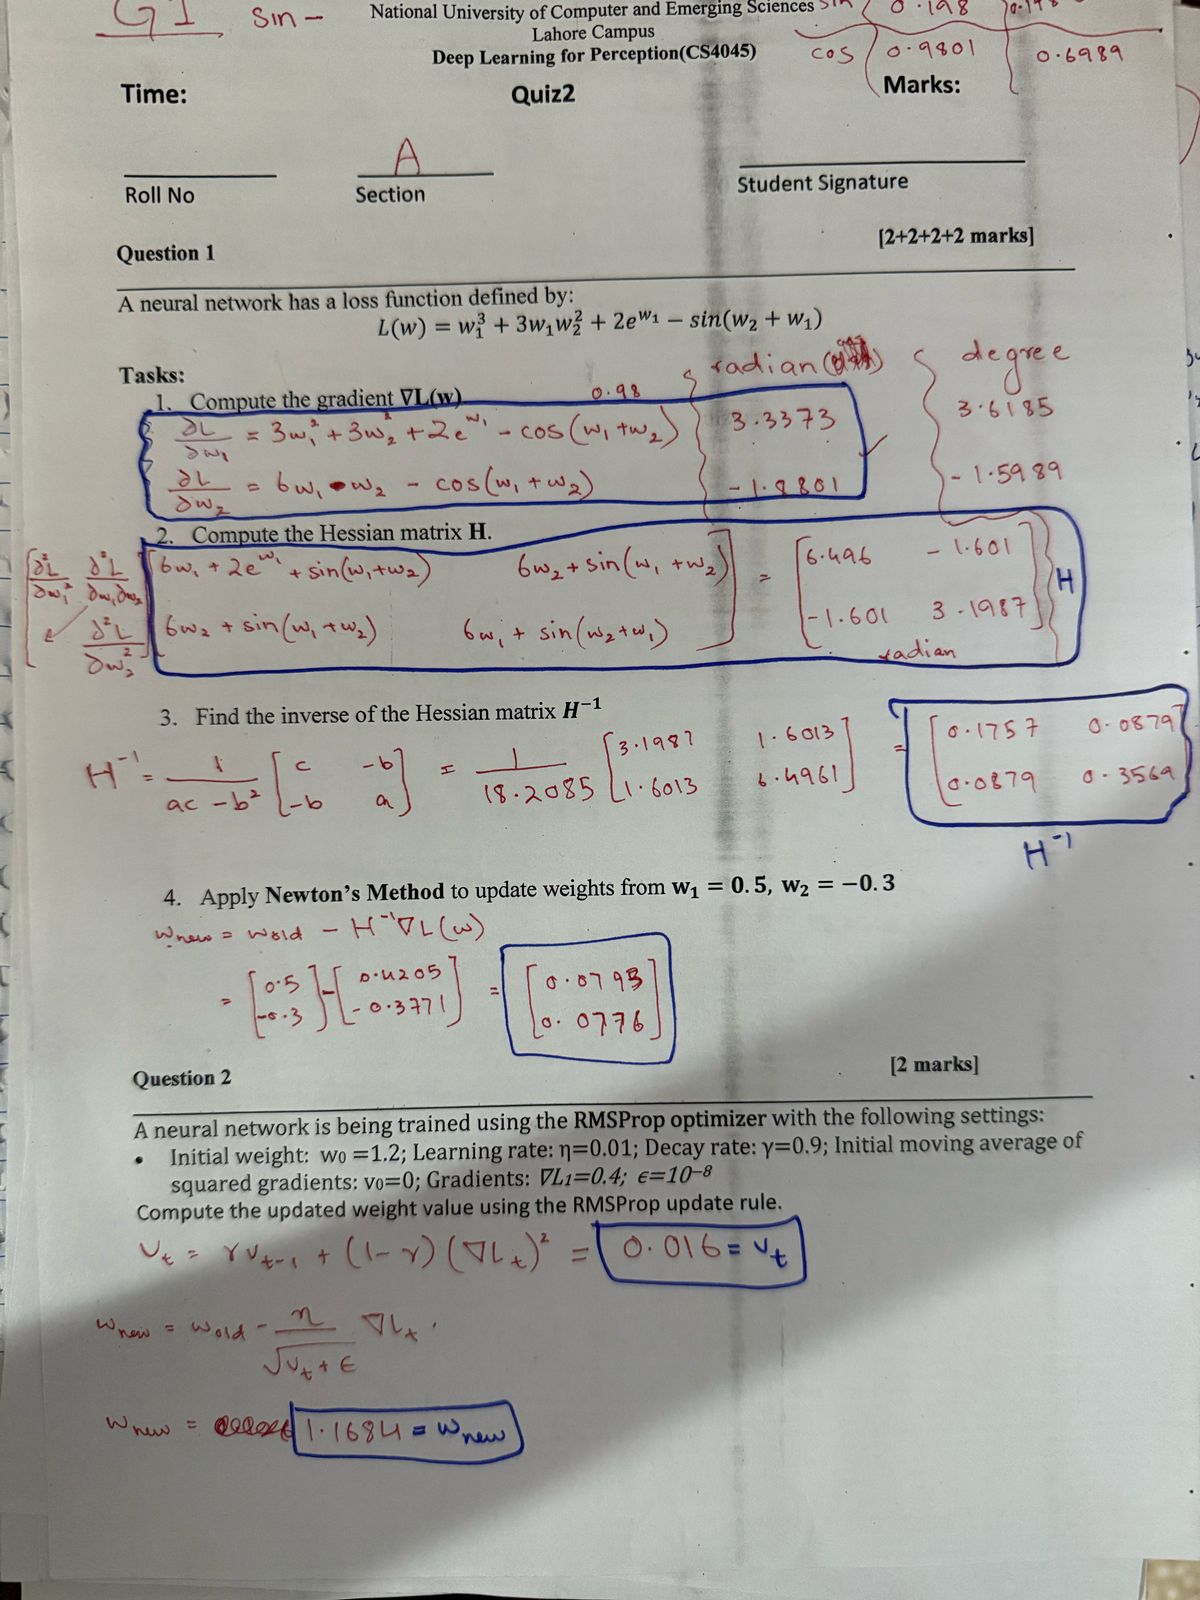 G1 sin - National University of Computer and Emerging Sciences sin 0.198 0.198
Lahore Campus
Deep Learning for Perception(CS4045) cos 0.9801 0.6989
Time: Quiz2 Marks:
A
Roll No Section Student Signature
Question 1 [2+2+2+2 marks]
A neural network has a loss function defined by:
L(w) = w₁³ + 3w₁w₂² + 2e^w₁ − sin(w₂ + w₁)
Tasks: radian degree
1. Compute the gradient ∇L(w) 0.98
∂L/∂w₁ = 3w₁² + 3w₂² + 2e^w₁ - cos(w₁ + w₂) 3.3373 3.6185
∂L/∂w₂ = 6w₁w₂ - cos(w₁ + w₂) -1.8801 -1.5989
2. Compute the Hessian matrix H.
[∂²L/∂w₁² ∂²L/∂w₁∂w₂ [6w₁ + 2e^w₁ + sin(w₁+w₂) 6w₂ + sin(w₁ + w₂)] = [6.496 -1.601] H
∂²L/∂w₂²] 6w₂ + sin(w₁ + w₂) 6w₁ + sin(w₂+w₁) -1.601 3.1987
radian
3. Find the inverse of the Hessian matrix H⁻¹
H⁻¹ = 1/(ac - b²) [c -b] = 1/18.2085 [3.1987 1.6013] = [0.1757 0.0879]
-b a 1.6013 6.4961 0.0879 0.3569
H⁻¹
4. Apply Newton's Method to update weights from w₁ = 0.5, w₂ = −0.3
w new = w old - H⁻¹∇L(w)
= [0.5] - [0.4205] = [0.0793]
-0.3 -0.3771 0.0776
Question 2 [2 marks]
A neural network is being trained using the RMSProp optimizer with the following settings:
• Initial weight: w₀ =1.2; Learning rate: η=0.01; Decay rate: γ=0.9; Initial moving average of
squared gradients: v₀=0; Gradients: ∇L₁=0.4; ϵ=10⁻⁸
Compute the updated weight value using the RMSProp update rule.
Vt = γVt-1 + (1-γ)(∇Lt)² = 0.016 = Vt
w new = w old - η/√(Vt + ϵ) ∇Lt
w new = 1.1684 = w new